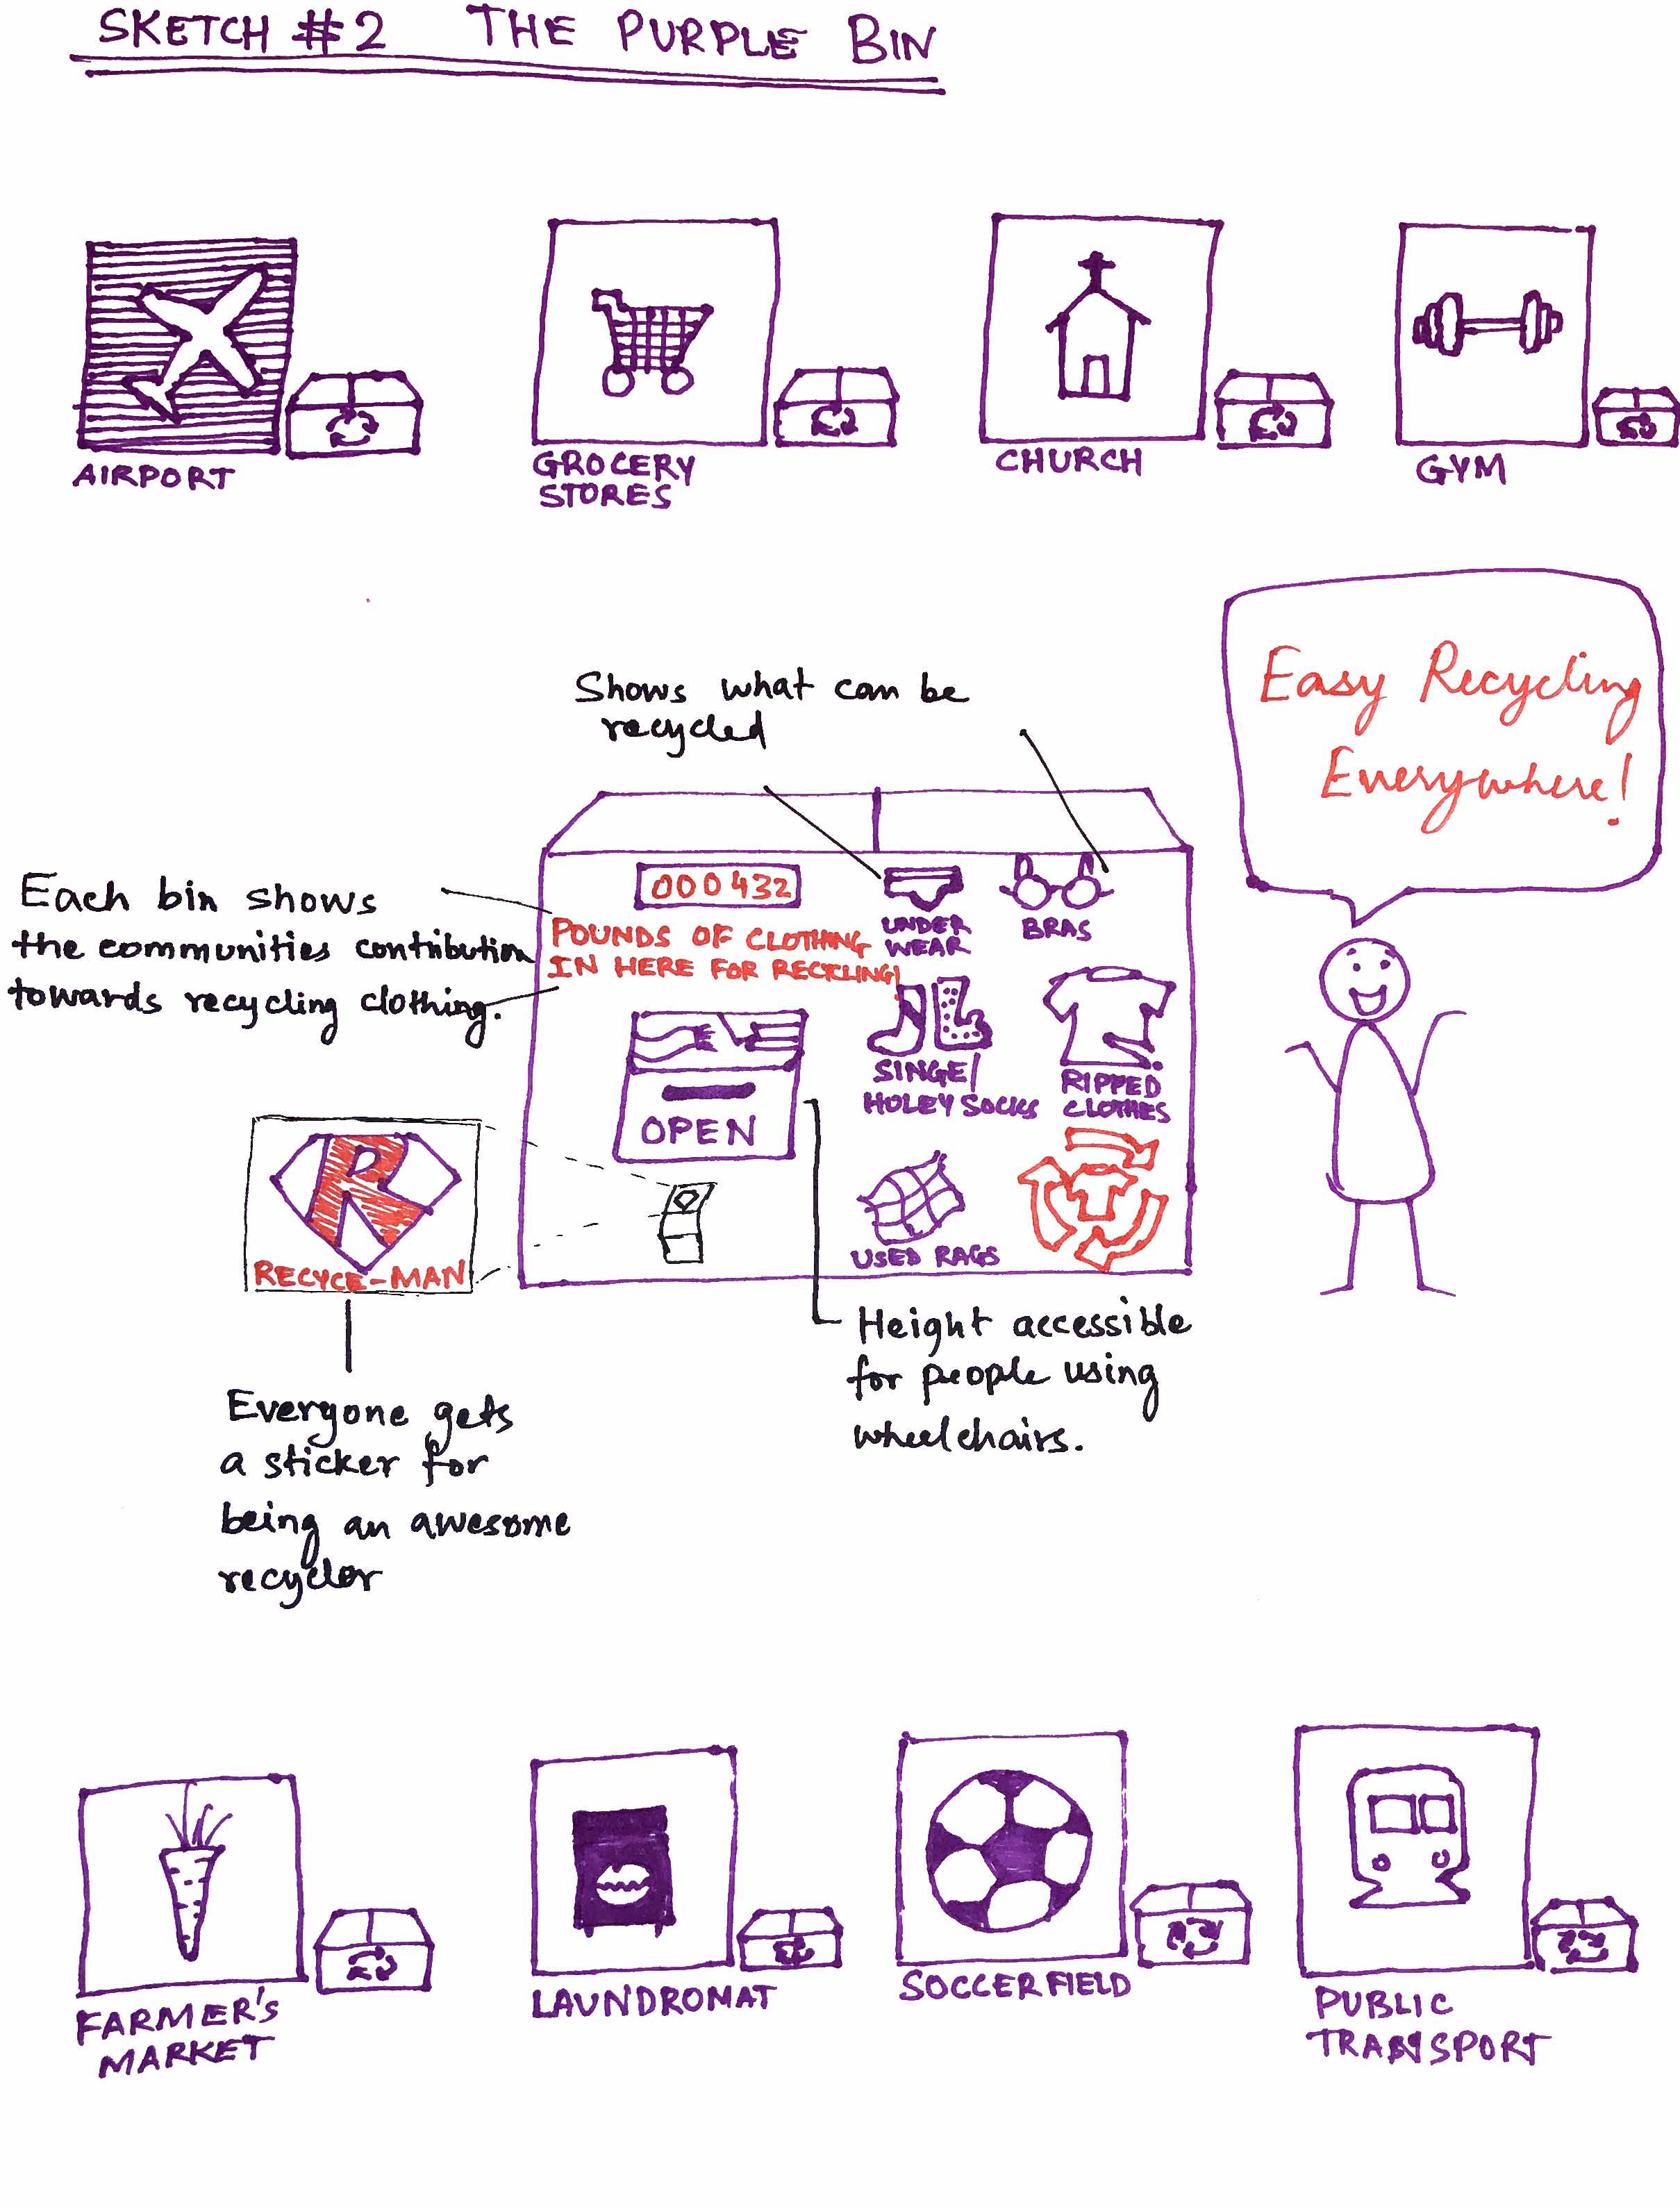 SKETCH #2 THE PURPLE BIN
AIRPORT
GROCERY
STORES
CHURCH
GYM
Easy Recycling
Everywhere!
Shows what can be
recycled
Each bin shows
the communities contribution
towards recycling clothing.
000432
POUNDS OF CLOTHING
IN HERE FOR RECYCLING!
UNDER
WEAR
BRAS
SINGE/
HOLEY SOCKS
RIPPED
CLOTHES
OPEN
USED RAGS
R
RECYCE-MAN
Height accessible
for people using
wheelchairs.
Everyone gets
a sticker for
being an awesome
recycler
FARMER'S
MARKET
LAUNDROMAT
SOCCER FIELD
PUBLIC
TRANSPORT